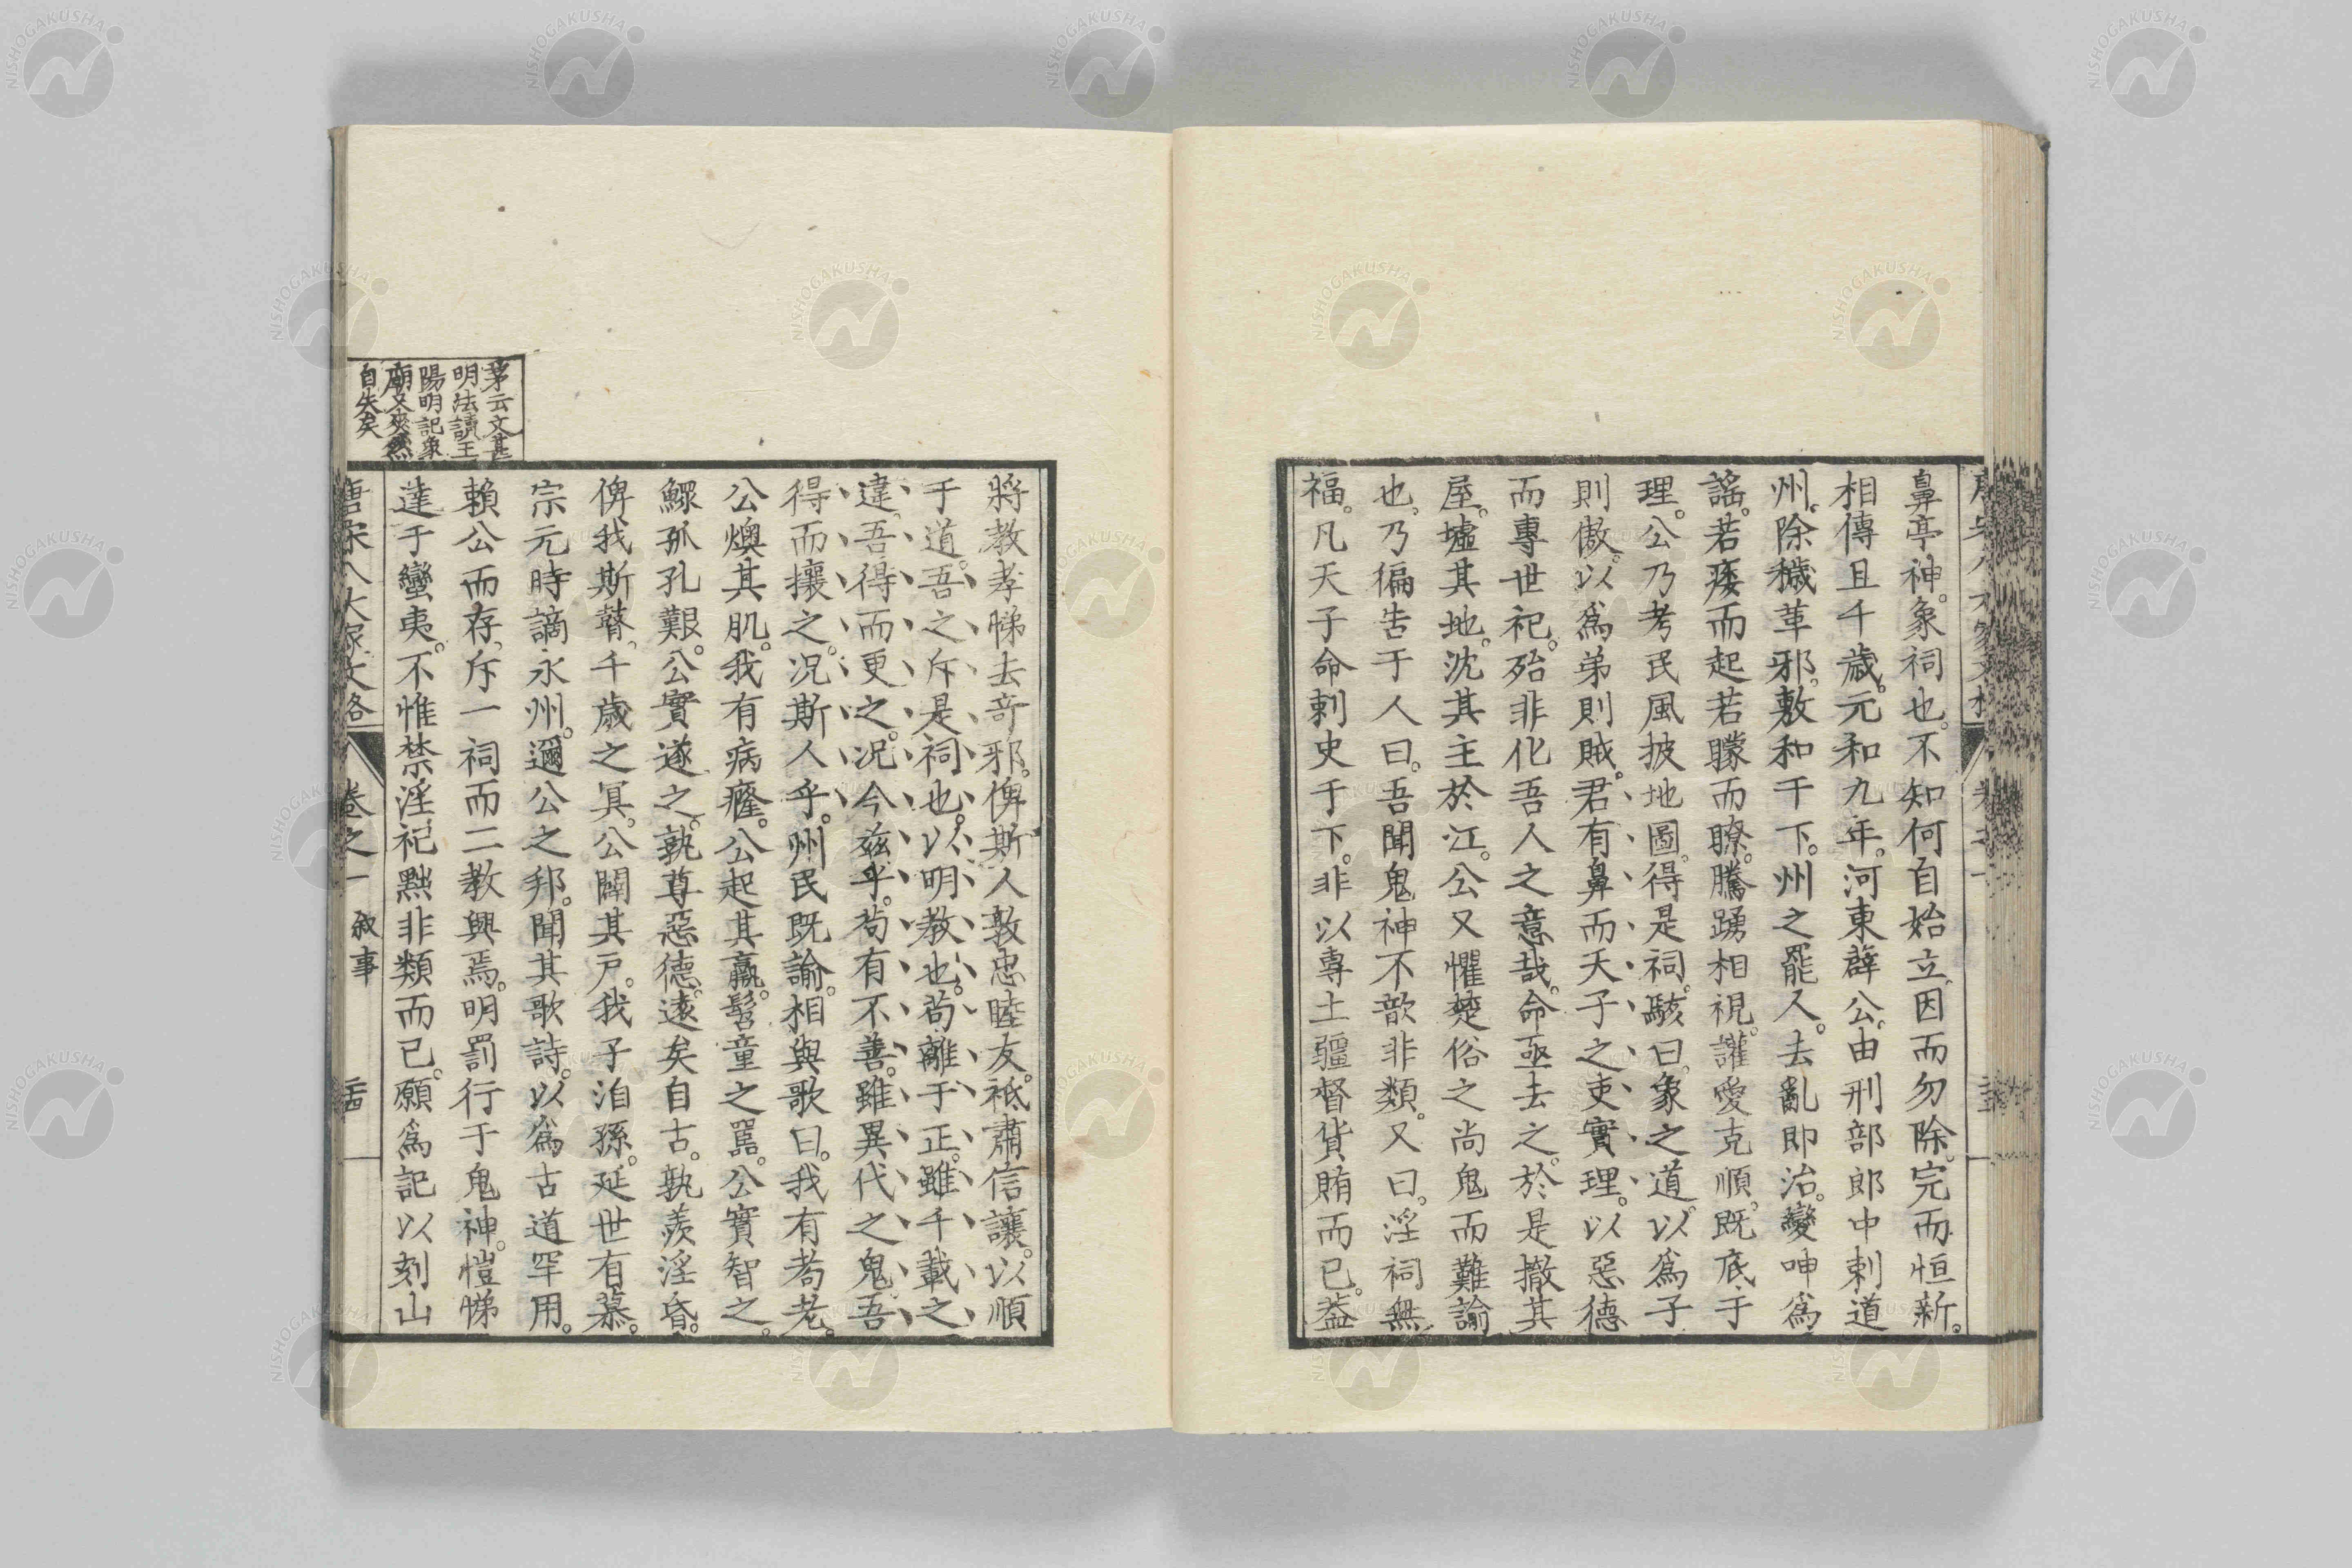 鼻亭神。象祠也。不知何自始立。因而勿除。完而恒新。
相傳且千歲。元和九年。河東薛公。由刑部郎中刺道
州。除穢革邪。敷和于下。州之罷人。去亂即治。變呻爲
謠。若痿而起若矇而瞭。騰踴相視。讙愛克順。既底于
理。公乃考民風披地圖。得是祠。駭曰。象之道。以爲子
則傲。以爲弟則賊。君有鼻而天子之吏實理。以惡德
而專世祀。殆非化吾人之意哉。命亟去之。於是撤其
屋。墟其地。沈其主於江。公又懼楚俗之尚鬼而難諭
也。乃徧告于人曰。吾聞鬼神不歆非類。又曰。淫祠無
福。凡天子命刺史于下。非以專土疆督貨賄而已。葢
將教孝悌去奇邪。俾斯人敦忠睦友。祗肅信讓。以順
于道。吾之斥是祠也。以明教也。苟離于正。雖千載之
違。吾得而更之。况今兹乎。苟有不善。雖異代之鬼。吾
得而攘之。况斯人乎。州民既諭。相與歌曰。我有耉老。
公燠其肌。我有病癃。公起其羸。髫童之嚚。公實智之。
鰥孤孔艱。公實遂之。孰尊惡德。遠矣自古。孰羨淫昏。
俾我斯瞽。千歲之冥。公闢其戸。我子洎孫。延世有慕。
宗元時謫永州。邇公之邦。聞其歌詩。以爲古道罕用。
賴公而存。斥一祠而二教興焉。明罰行于鬼神。愷悌
達于蠻夷。不惟禁淫祀黜非類而已。願爲記以刻山
茅云文甚
明法讀王
陽明記象
廟又爽然
自失矣
唐宋八大家文格
卷之一
叙事